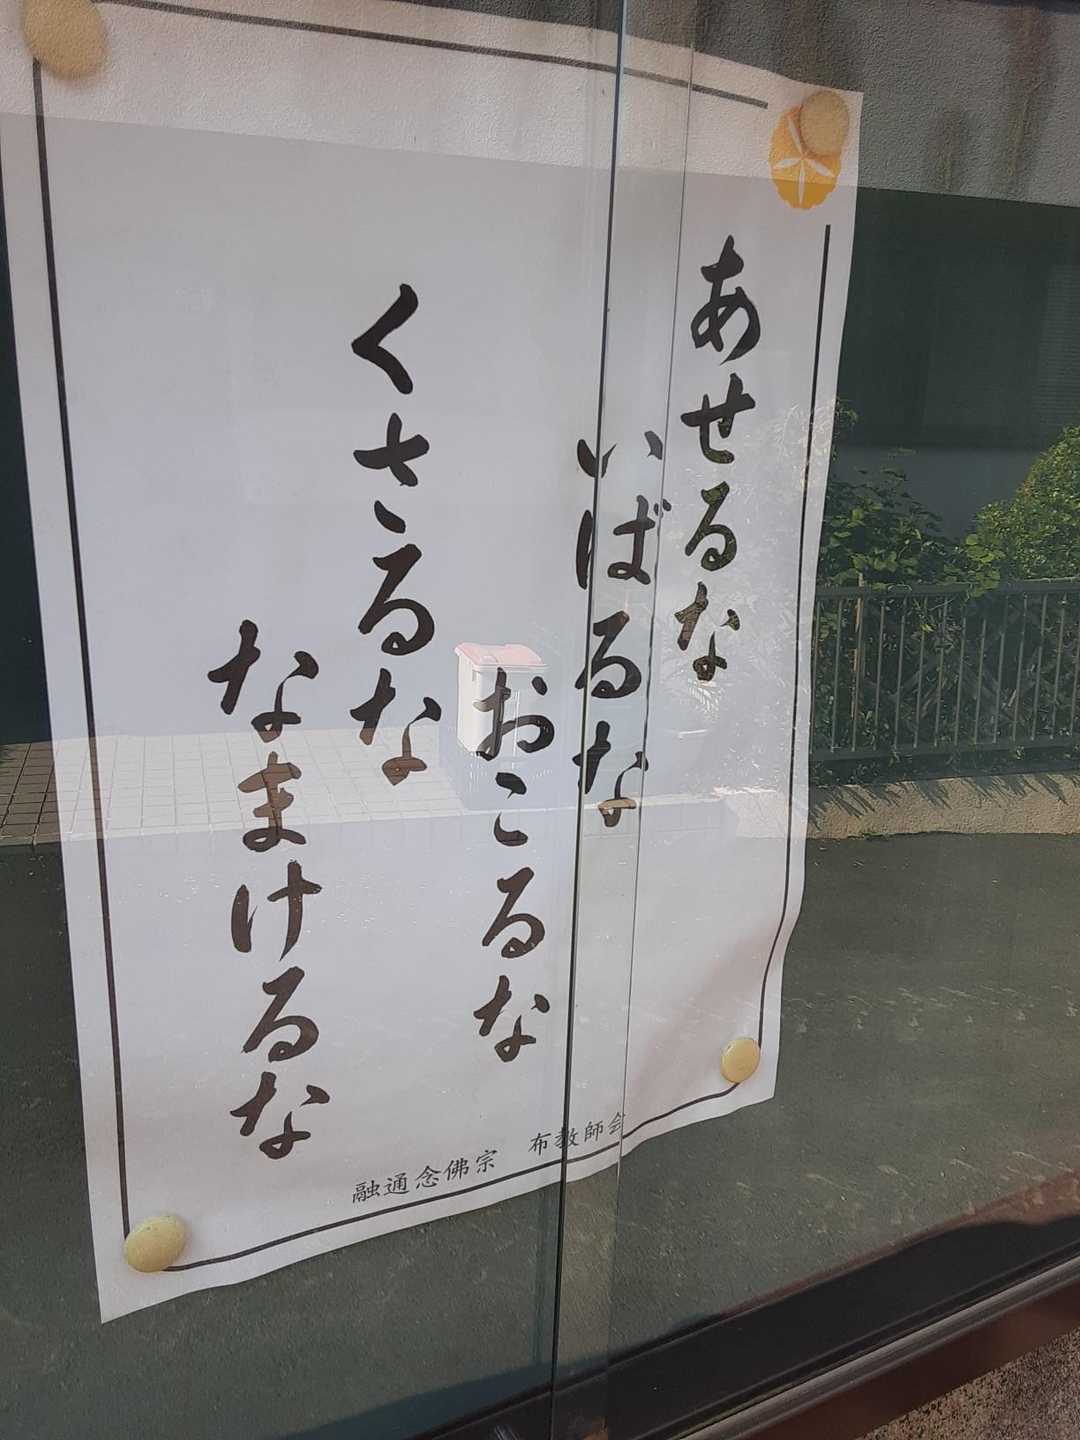 あせるな
いばるな
おこるな
くさるな
なまけるな
融通念佛宗　布教師会